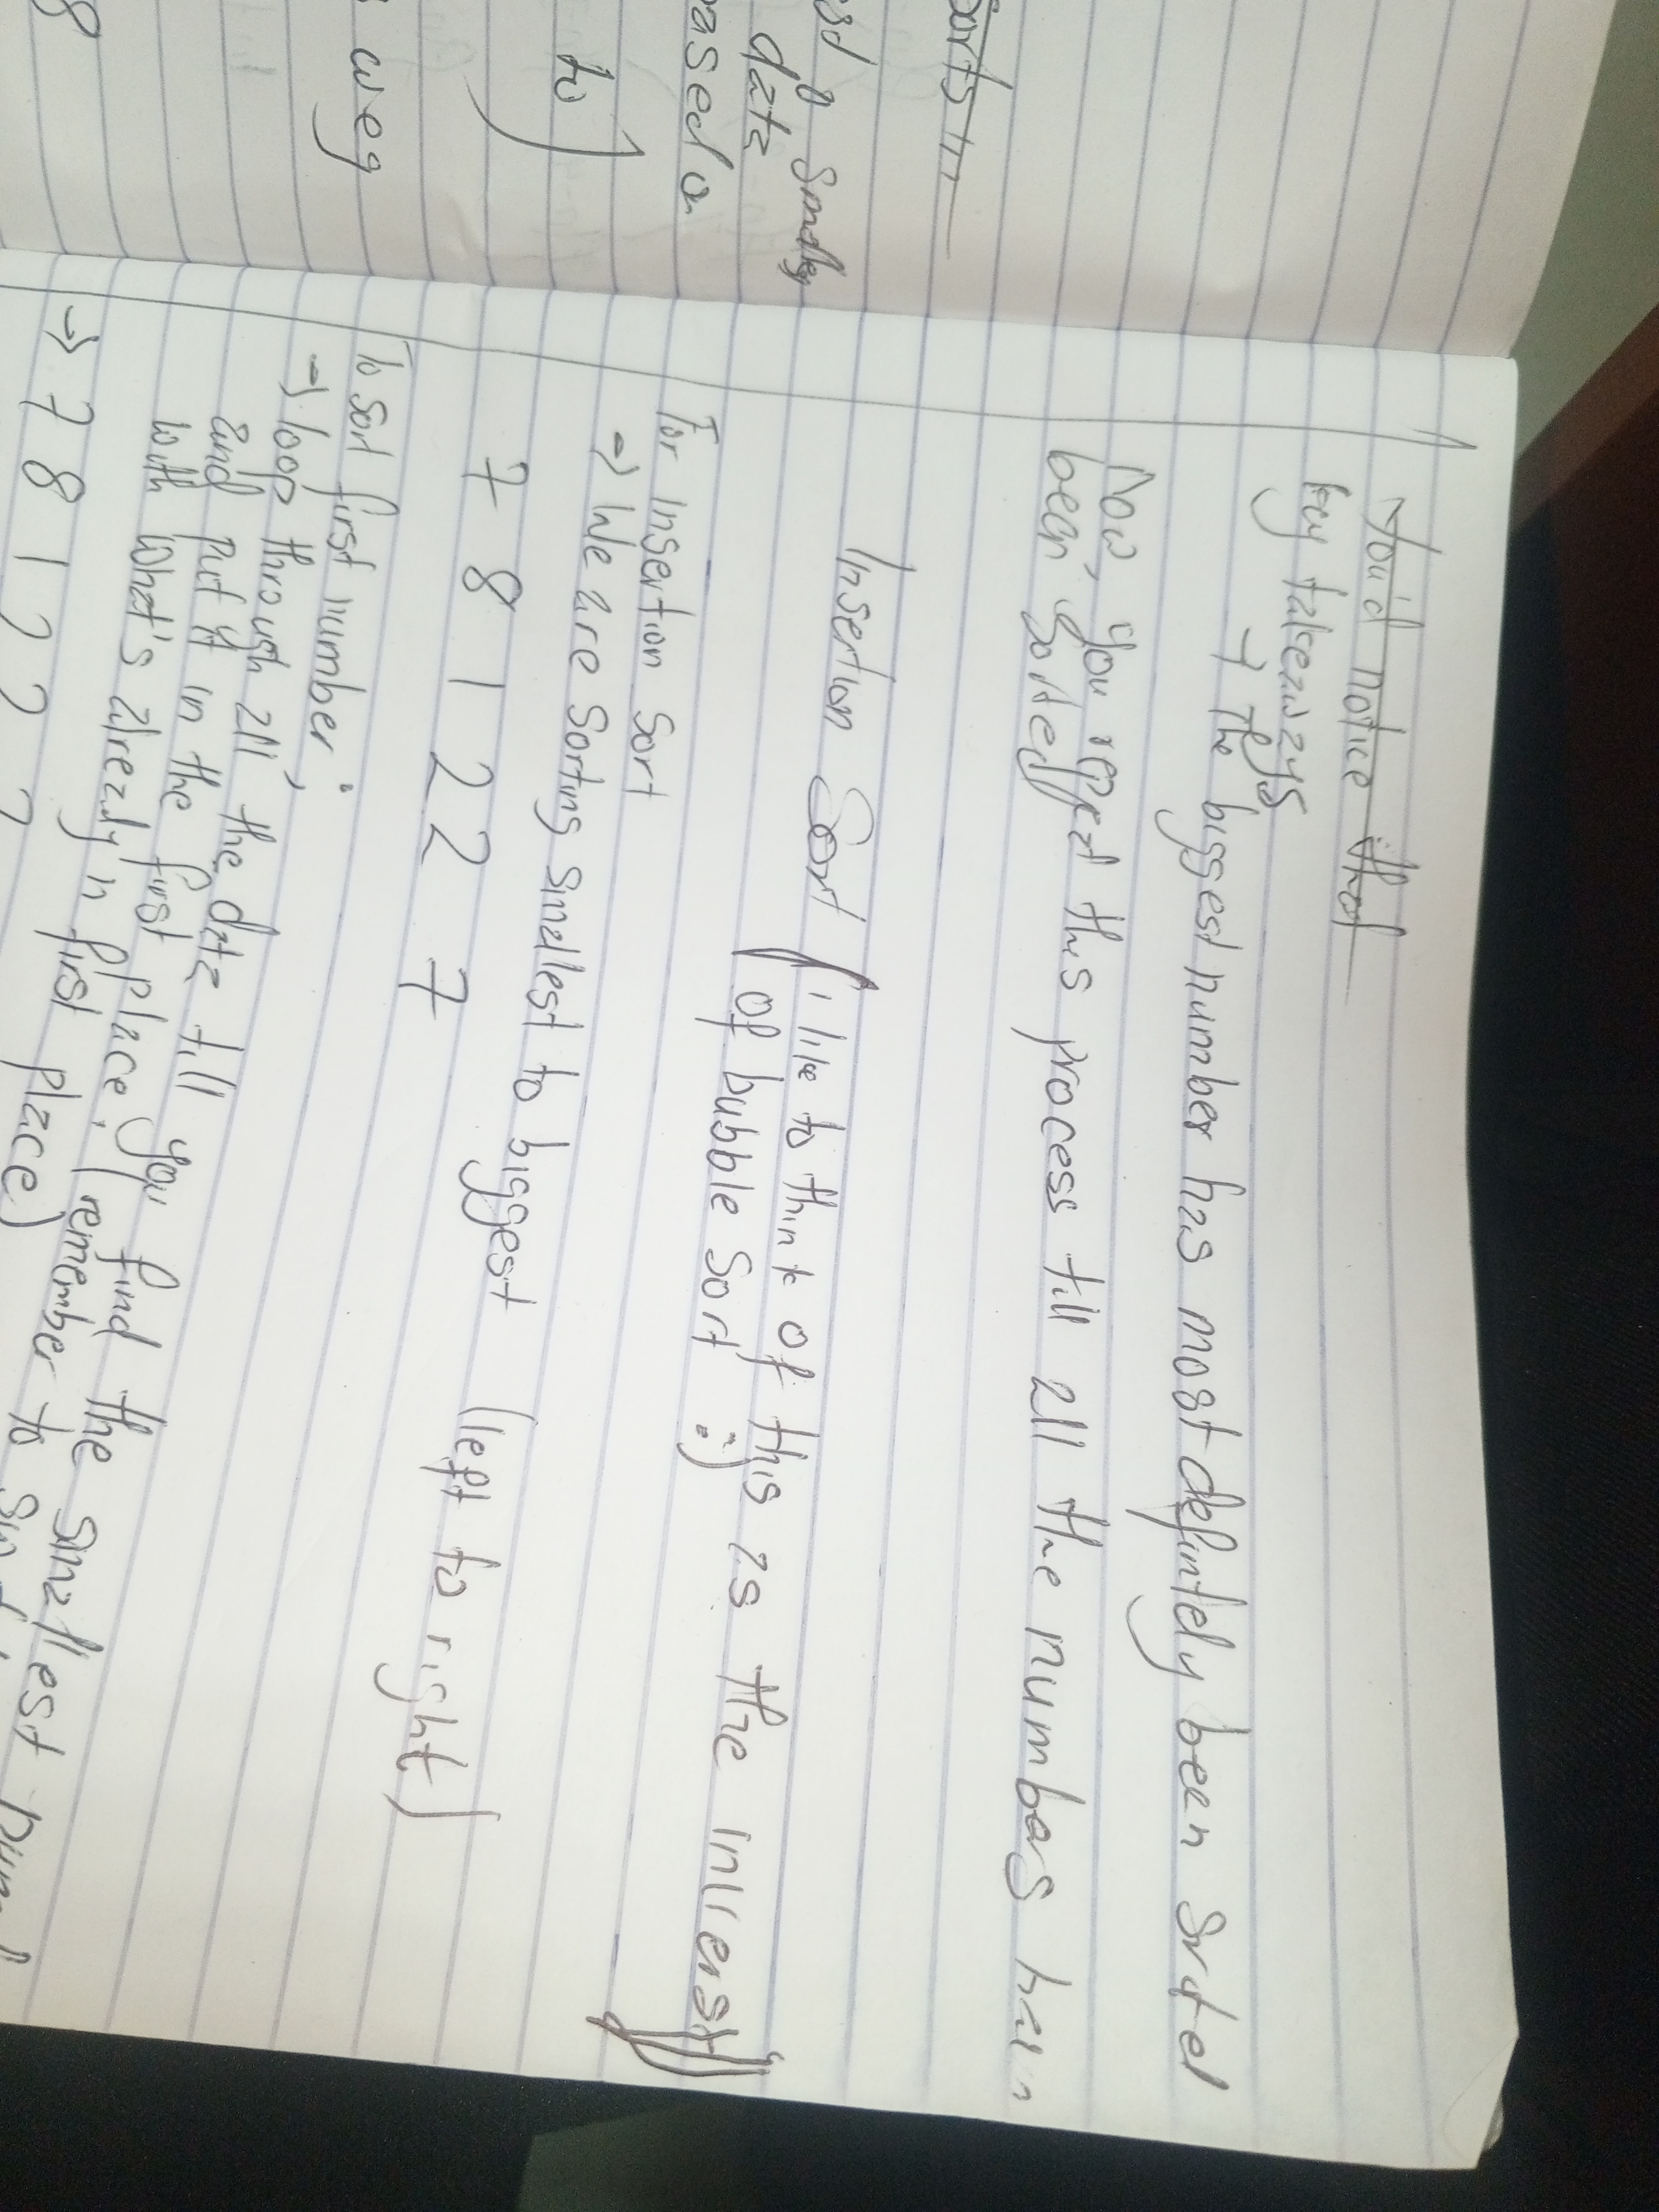 data
based on
to)
weg
8
You'd notice that
key takeaways
→ The biggest number has most definitely been sorted
Now, you repeat this process till all the numbers have
been sorted
Insertion Sort (I like to think of this as the inverse
of bubble sort :)
For insertion sort
⇒ We are sorting smallest to biggest (left to right)
7 8 1 2 2 7
To sort first number:
→ loop through all the data till you find the smallest
and put it in the first place, (remember to
with what's already in first place)
→ 7 8 1 2 2 7